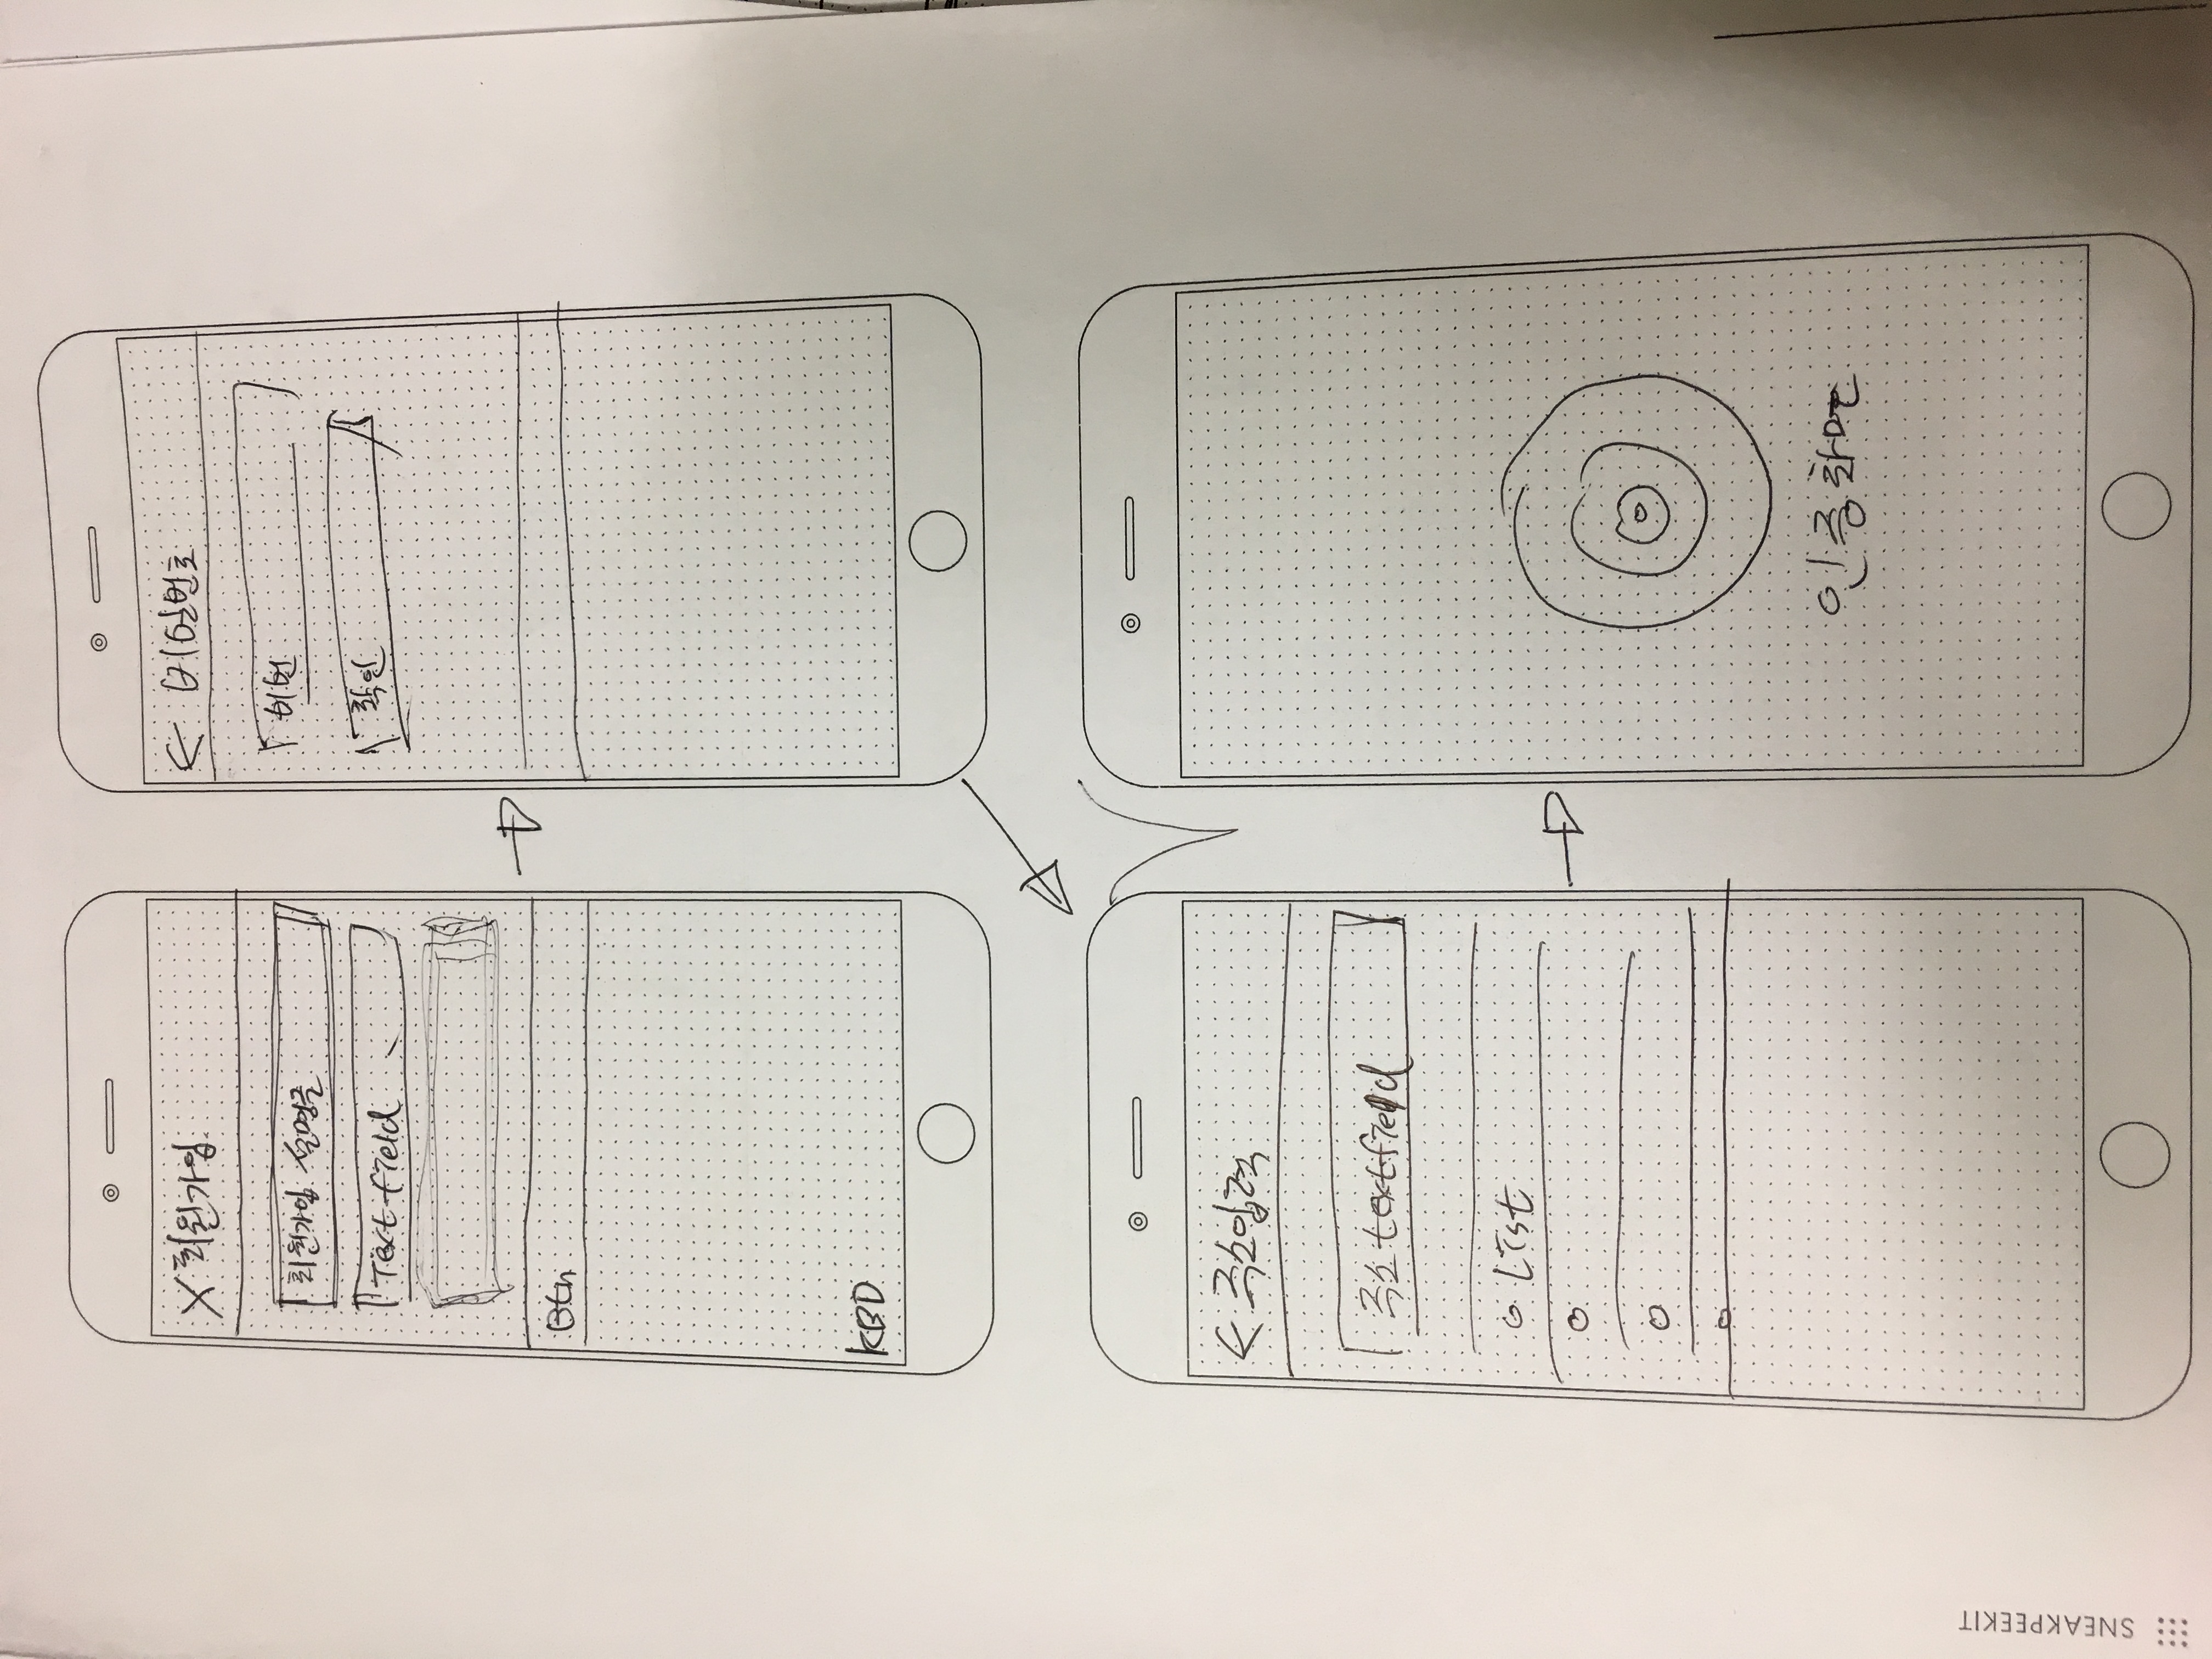 X 회원가입
회원가입 설명글
Text field
Btn
KBD
← 비밀번호
비번
확인
← 주소입력
주소 textfield
List
인증화면
SNEAKPEEKIT